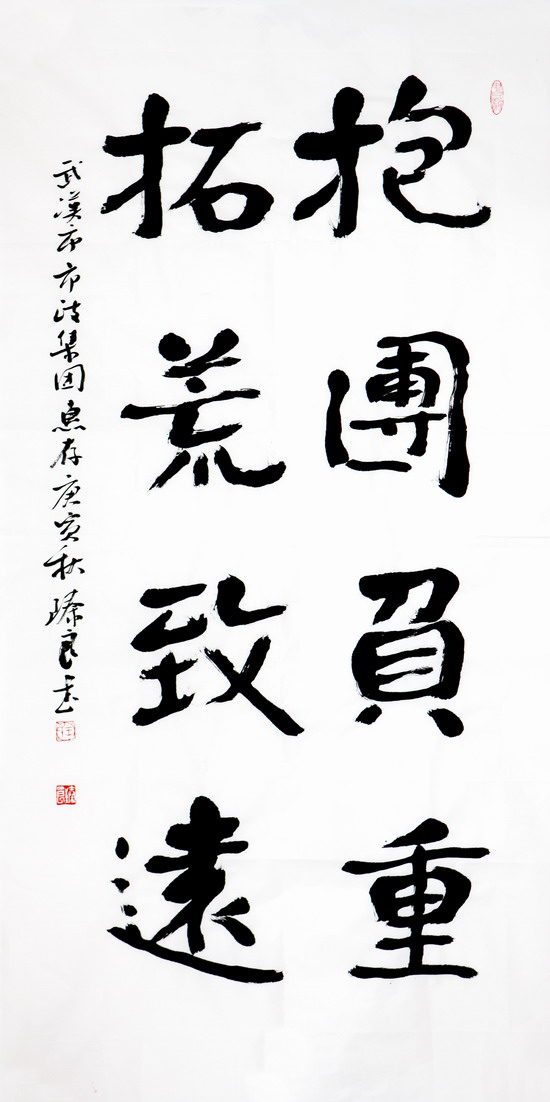 抱團負重
拓荒致遠
武漢市市政集团惠存庚寅秋